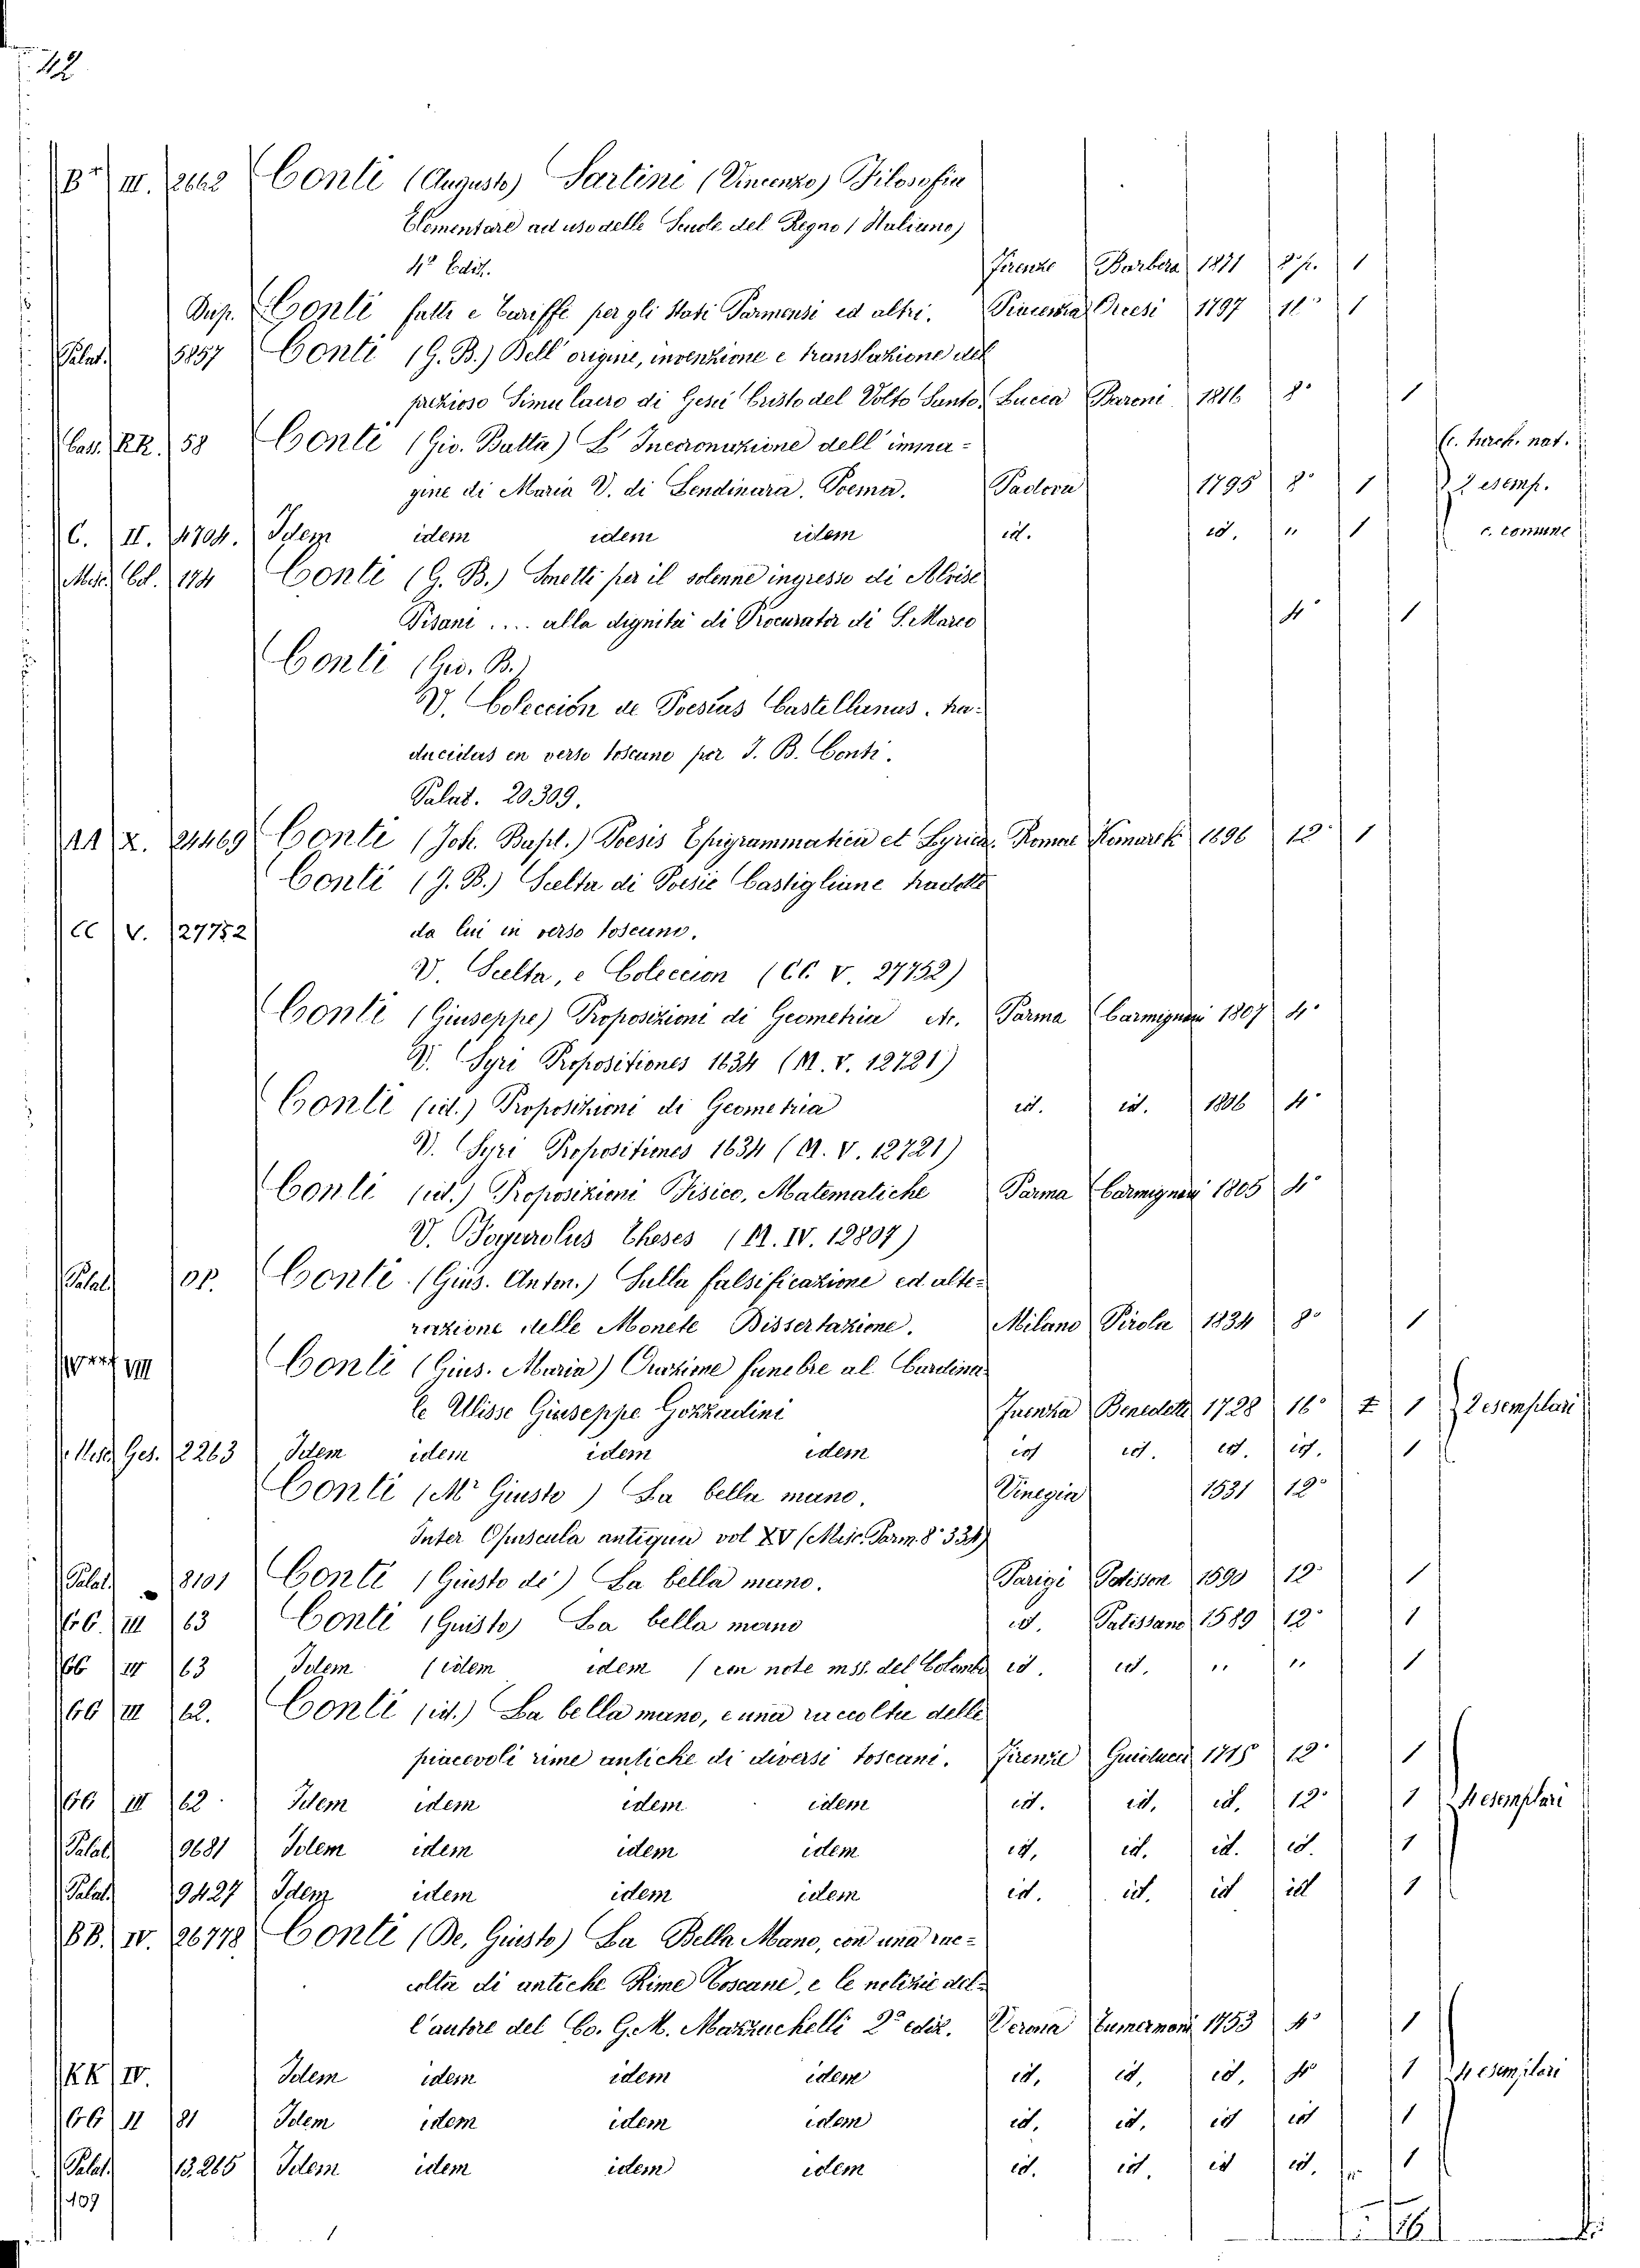 42
Br III. 2662 Conti (Augusto) Sartini (Vincenzo) Filosofia
Elementare ad uso delle Scuole del Regno (Italiano)
4a Ediz. Firenze Barbera 1871 8° p. 1
Dup. Conti fatti e Tariffe per gli Stati Parmensi ed altri. Piacenza Orcesi 1797 16° 1
Palat. 5857 Conti (G. B.) Dell' origine, invenzione e translazione del
prezioso Simulacro di Gesù Cristo del Volto Santo. Lucca Baroni 1816 8° 1
Cass. RR. 58 Conti (Gio. Batta) L' Incoronazione dell' imma- c. turch. nat.
gine di Maria V. di Lendinara. Poema. Padova 1795 8° 1 2 esemp.
C. II. 4704. Idem idem idem idem id. id. " 1 c. comune
Misc. Col. 174 Conti (G. B.) Sonetti per il solenne ingresso di Alvise
Pisani .... alla dignità di Procurator di S. Marco 4° 1
Conti (Gio. B.)
V. Colección de Poesias Castellanas. tra-
ducidas en verso toscano per J. B. Conti.
Palat. 20309.
AA X. 24469 Conti (Joh. Bapt.) Poesis Epigrammatica et Lyrica. Romae Komarek 1696 12° 1
Conti (J. B.) Scelta di Poesie Castigliane tradotte
CC V. 27752 da lui in verso toscano.
V. Scelta, e Coleccion (CC. V. 27752)
Conti (Giuseppe) Proposizioni di Geometria etc. Parma Carmignani 1807 4°
V. Syri Propositiones 1634 (M. V. 12721)
Conti (id.) Proposizioni di Geometria id. id. 1806 4°
V. Syri Propositiones 1634 (M. V. 12721)
Conti (id.) Proposizioni Fisico, Matematiche Parma Carmignani 1805 4°
V. Theses (M. IV. 12807)
Palat. op. Conti (Gius. Anton.) Sulla falsificazione ed alte-
razione delle Monete Dissertazione. Milano Pirola 1834 8° 1
VIII Conti (Gius. Maria) Orazione funebre al Cardina-
le Ulisse Giuseppe Gozzadini Faenza Benedetti 1728 16° 1 2 esemplari
Misc. Ges. 2263 Idem idem idem idem id id. id. id. 1
Conti (Mr Giusto) La bella mano. Vinegia 1531 12°
Inter Opuscula antiqua vol XV (Misc. Parm. 8° 334)
Palat. 8101 Conti (Giusto de') La bella mano. Parigi Patisson 1590 12° 1
GG. III 63 Conti (Giusto) La bella mano id. Patissano 1589 12° 1
GG III 63 Idem (idem idem (con note mss. del id. id. " " 1
GG III 62. Conti (id.) La bella mano, e una raccolta delle
piacevoli rime antiche di diversi toscani. Firenze Guiducci 1715 12° 1
GG III 62. Idem idem idem idem id. id. id. 12° 1 4 esemplari
Palat. 9681 Idem idem idem idem id. id. id. id. 1
Palat. 9427 Idem idem idem idem id. id. id id 1
BB. IV. 26778 Conti (De, Giusto) La Bella Mano, con una rac-
colta di antiche Rime Toscane, e le notizie del-
l' autore del Co. G. M. Mazzuchelli 2a ediz. Verona Tumermani 1753 4° 1
KK IV. Idem idem idem idem id. id. id. 4° 1 4 esemplari
GG II 81 Idem idem idem idem id. id. id id 1
Palat. 13.265 Idem idem idem idem id. id. id id. 1
109